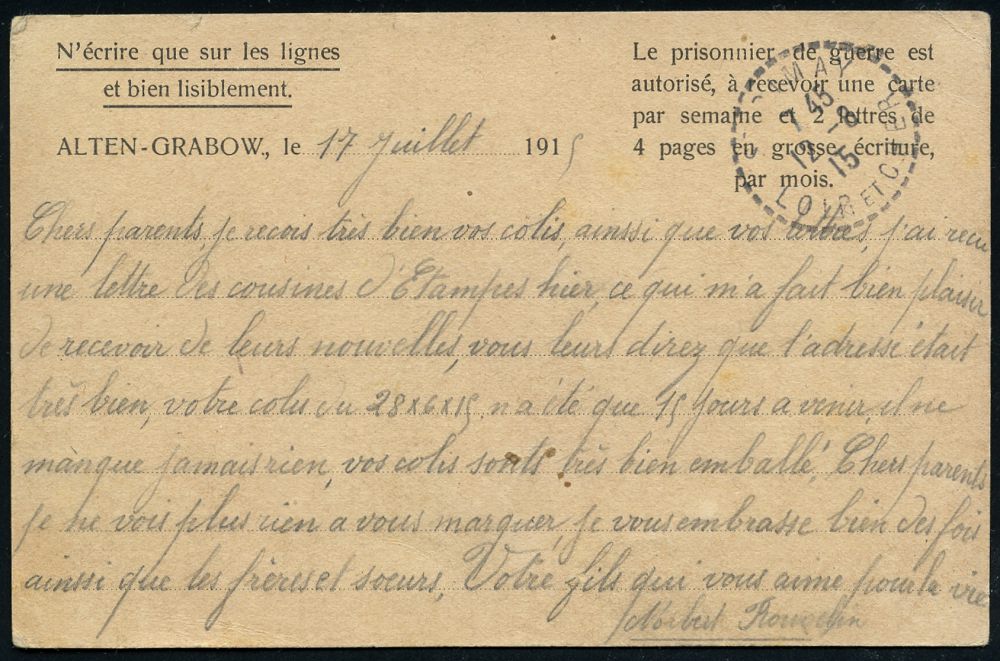 N'écrire que sur les lignes
et bien lisiblement.
Le prisonnier de guerre est
autorisé, à recevoir une carte
par semaine et 2 lettres de
4 pages en grosse écriture,
par mois.
MAY
7 45
12 -8
15
LOIR ET CHER
ALTEN-GRABOW., le 17 Juillet 1915
Chers parents, je recois très bien vos colis, ainssi que vos j'ai recu
une lettre des cousines d'Etampes hier, ce qui m'a fait bien plaisir
de recevoir de leurs nouvelles, vous leurs direz que l'adresse était
très bien, votre colis du 28x6x15 n'a été que 15 jours a venir, il ne
manque jamais rien, vos colis sonts très bien emballé, Chers parents
je ne vois plus rien a vous marquer, je vous embrasse bien des fois
ainssi que les frères et soeurs, Votre fils qui vous aime pour la vie
Norbert